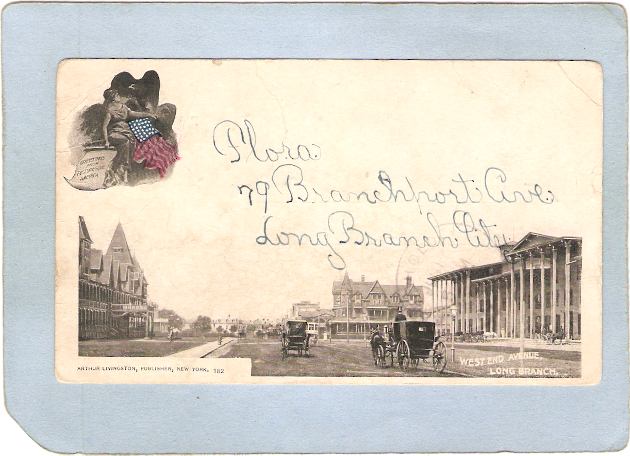 GREETINGS
FROM
PICTURESQUE
AMERICA
Flora
79 Branchport Ave
Long Branch City
WEST END AVENUE
LONG BRANCH.
ARTHUR LIVINGSTON, PUBLISHER, NEW YORK. 182